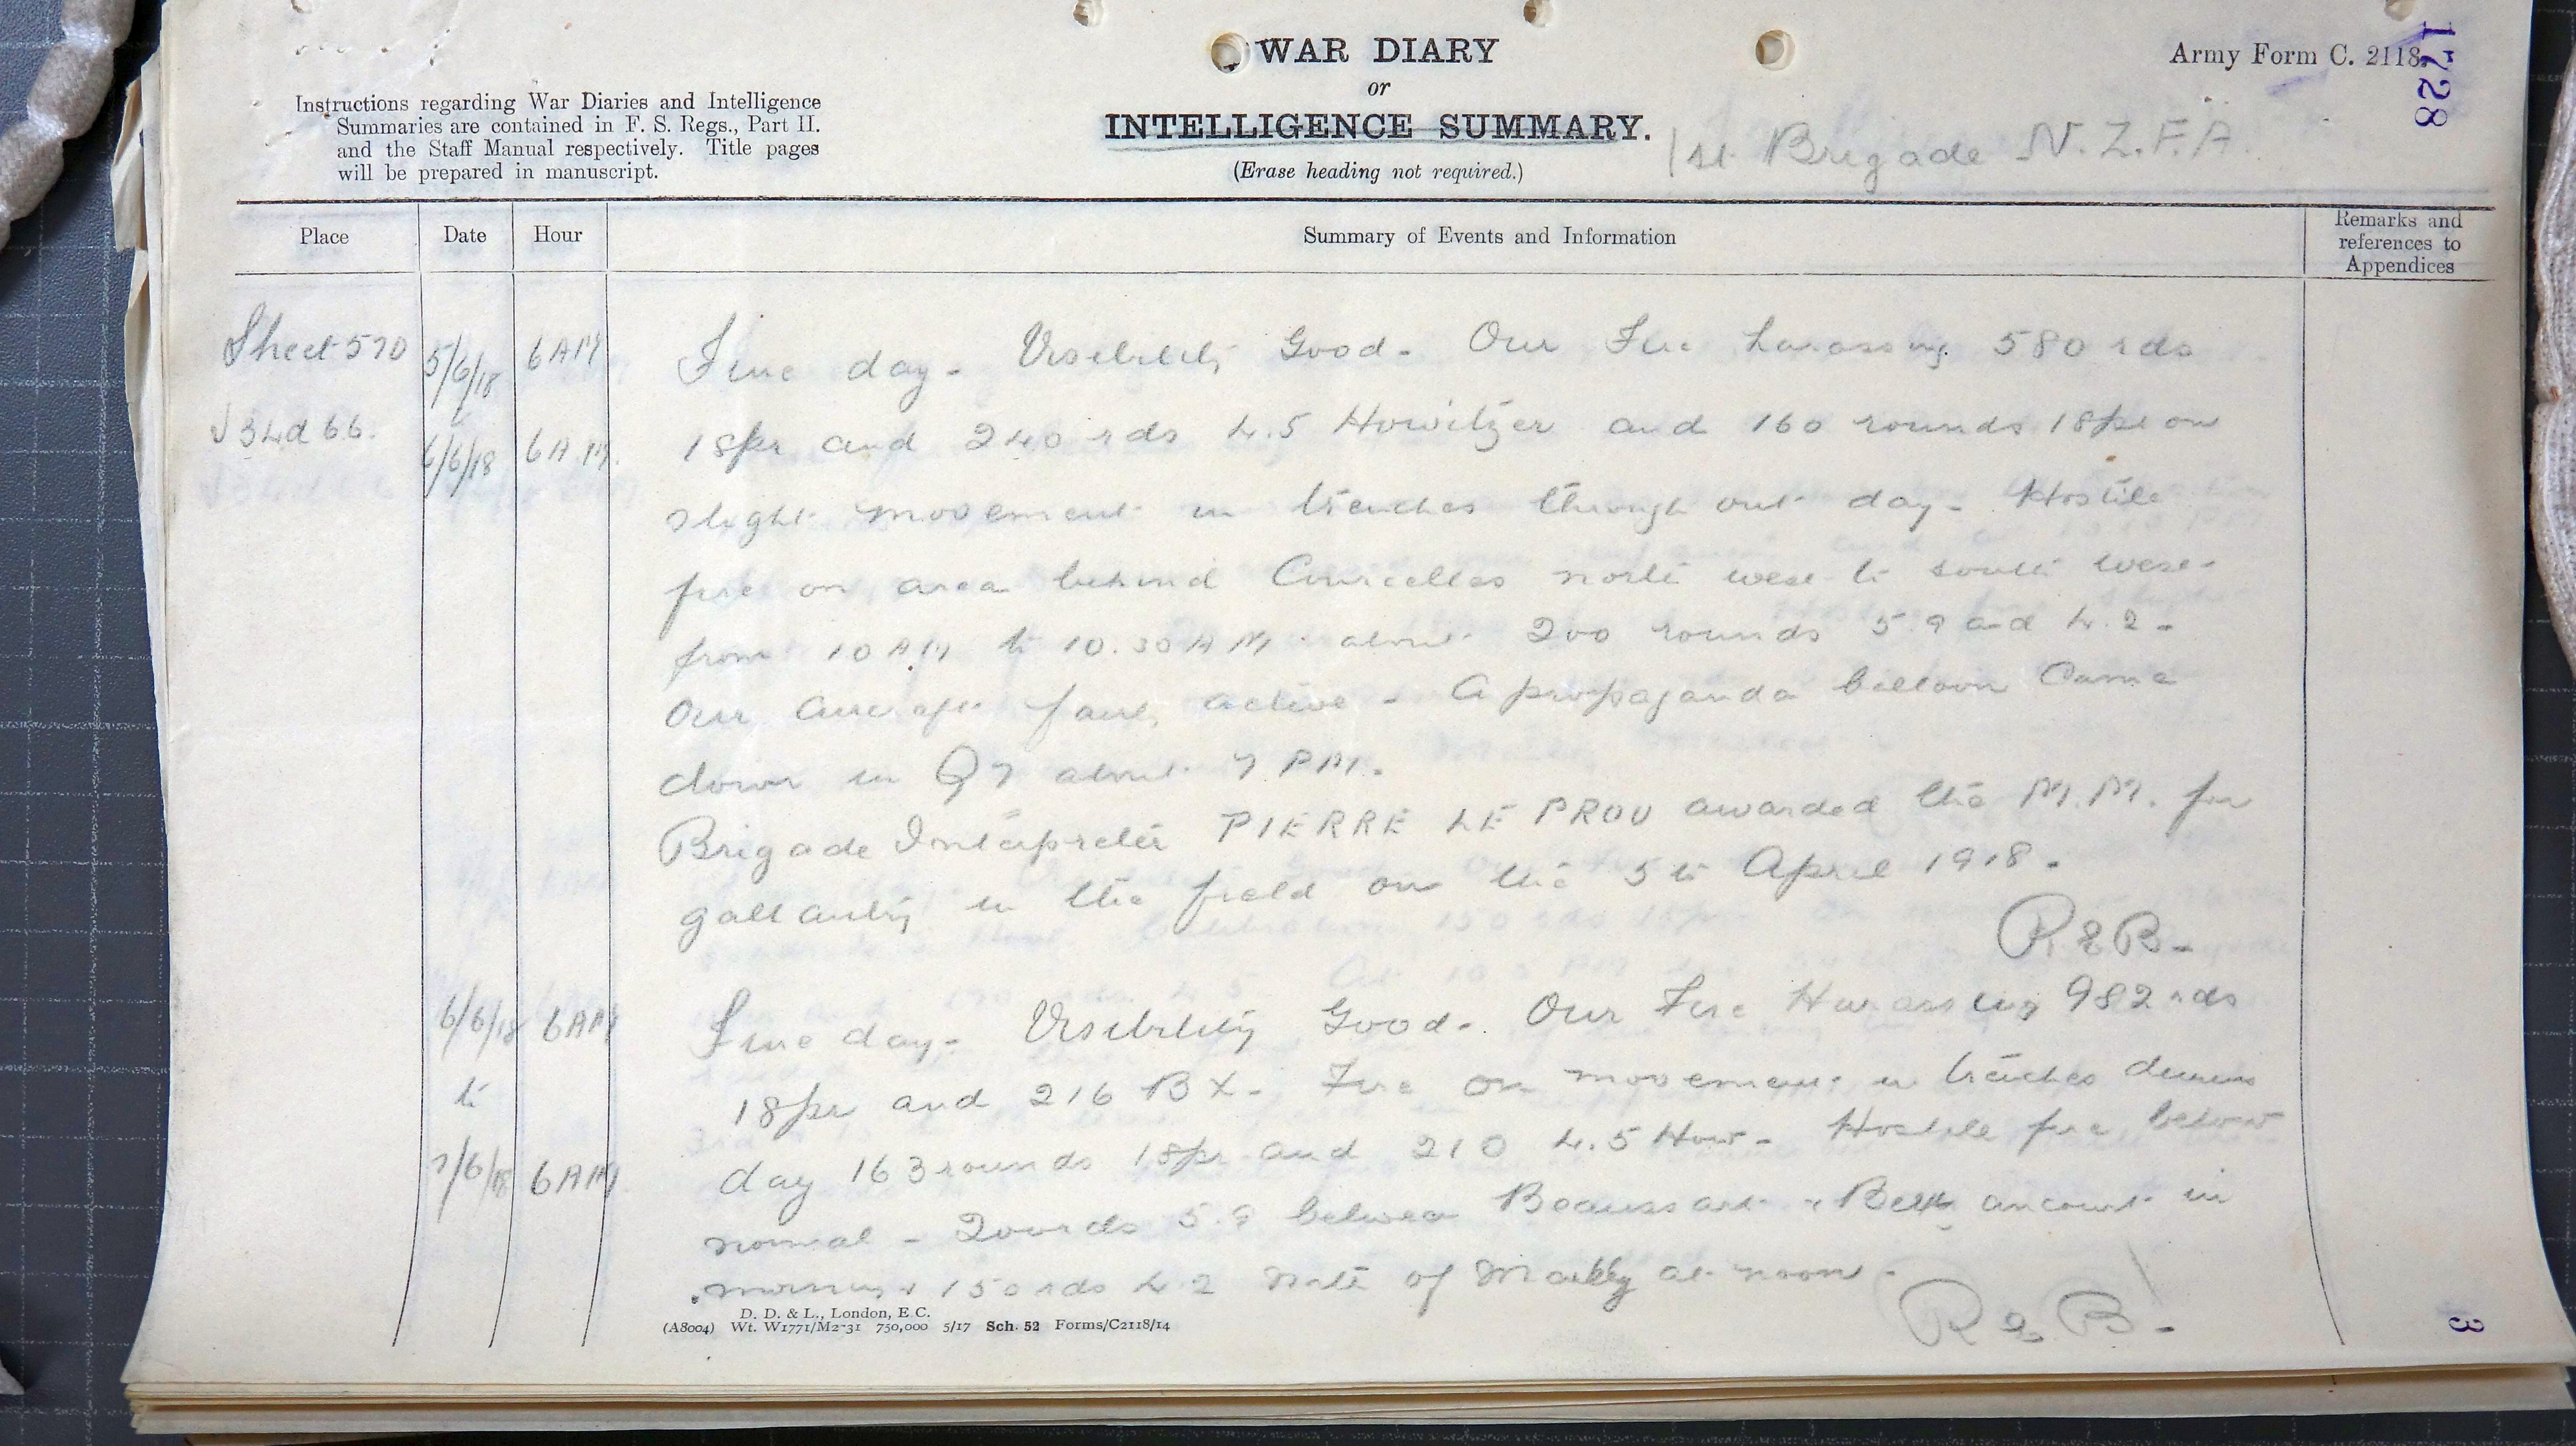 WAR DIARY
or
INTELLIGENCE SUMMARY.
(Erase heading not required.)
Army Form C. 2118.
1728
Instructions regarding War Diaries and Intelligence
Summaries are contained in F. S. Regs., Part II.
and the Staff Manual respectively. Title pages
will be prepared in manuscript.
1st Brigade N.Z.F.A.
Place Date Hour Summary of Events and Information Remarks and
references to
Appendices
Sheet 57D 5/6/18 6AM Fine day - Visibility Good - Our Fire harassing 580 rds
J34d 66. 6/6/18 6AM. 18pr and 240 rds 4.5 Howitzer and 160 rounds 18pr on
slight movement in trenches through out day - Hostile
fire on area behind Courcelles north west to south west
from 10AM to 10.30AM about 200 rounds 5.9 and 4.2 -
Our aircraft fairly active - A propaganda balloon came
down in Q7 about 7 PM.
Brigade Interpreter PIERRE LE PROU awarded the M.M. for
gallantry in the field on the 5th April 1918.
R&B -
6/6/18 6AM Fine day - Visibility Good - Our Fire Harassing 982 rds
to 18pr and 216 BX - Fire on movement in trenches during
7/6/18 6AM day 163 rounds 18pr and 210 4.5 How - Hostile fire below
normal - 200 rds 5.9 between Beaussart & ancourt in
morning & 150 rds 4.2 North of Mailly at noon -
R&B -
D. D. & L., London, E.C.
(A8004) Wt. W1771/M2-31 750,000 5/17 Sch. 52 Forms/C2118/14
3